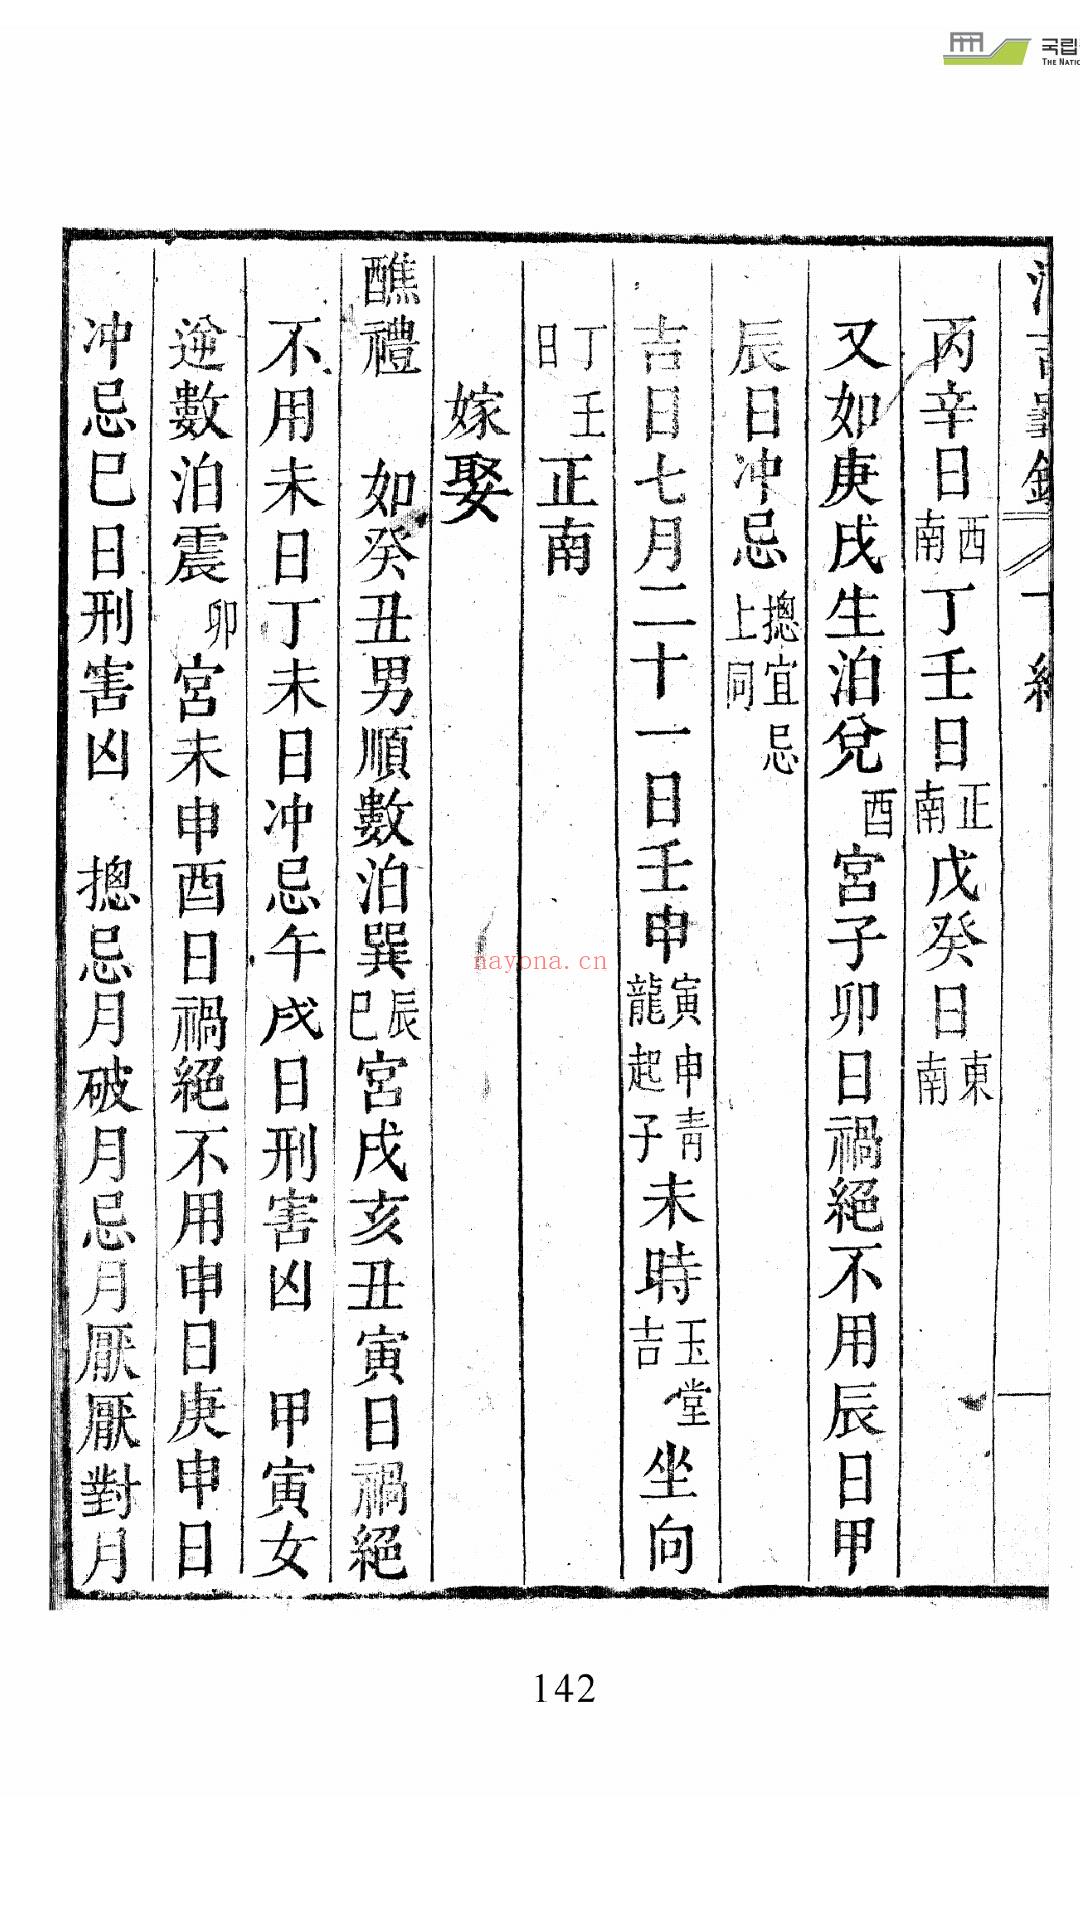 国립
THE NATIO
丙辛日西南丁壬日正南戊癸日東南
又如庚戌生泊兌酉宮子卯日禍絕不用辰日甲
辰日冲忌摠宜忌上同
吉日七月二十一日壬申寅申青龍起子未時玉堂吉坐向
丁壬日正南
嫁娶
醮禮 如癸丑男順數泊巽辰巳宮戌亥丑寅日禍絕
不用未日丁未日冲忌午戌日刑害凶 甲寅女
逆數泊震卯宮未申酉日禍絕不用申日庚申日
冲忌巳日刑害凶 摠忌月破月忌月厭厭對月
nayona.cn
142